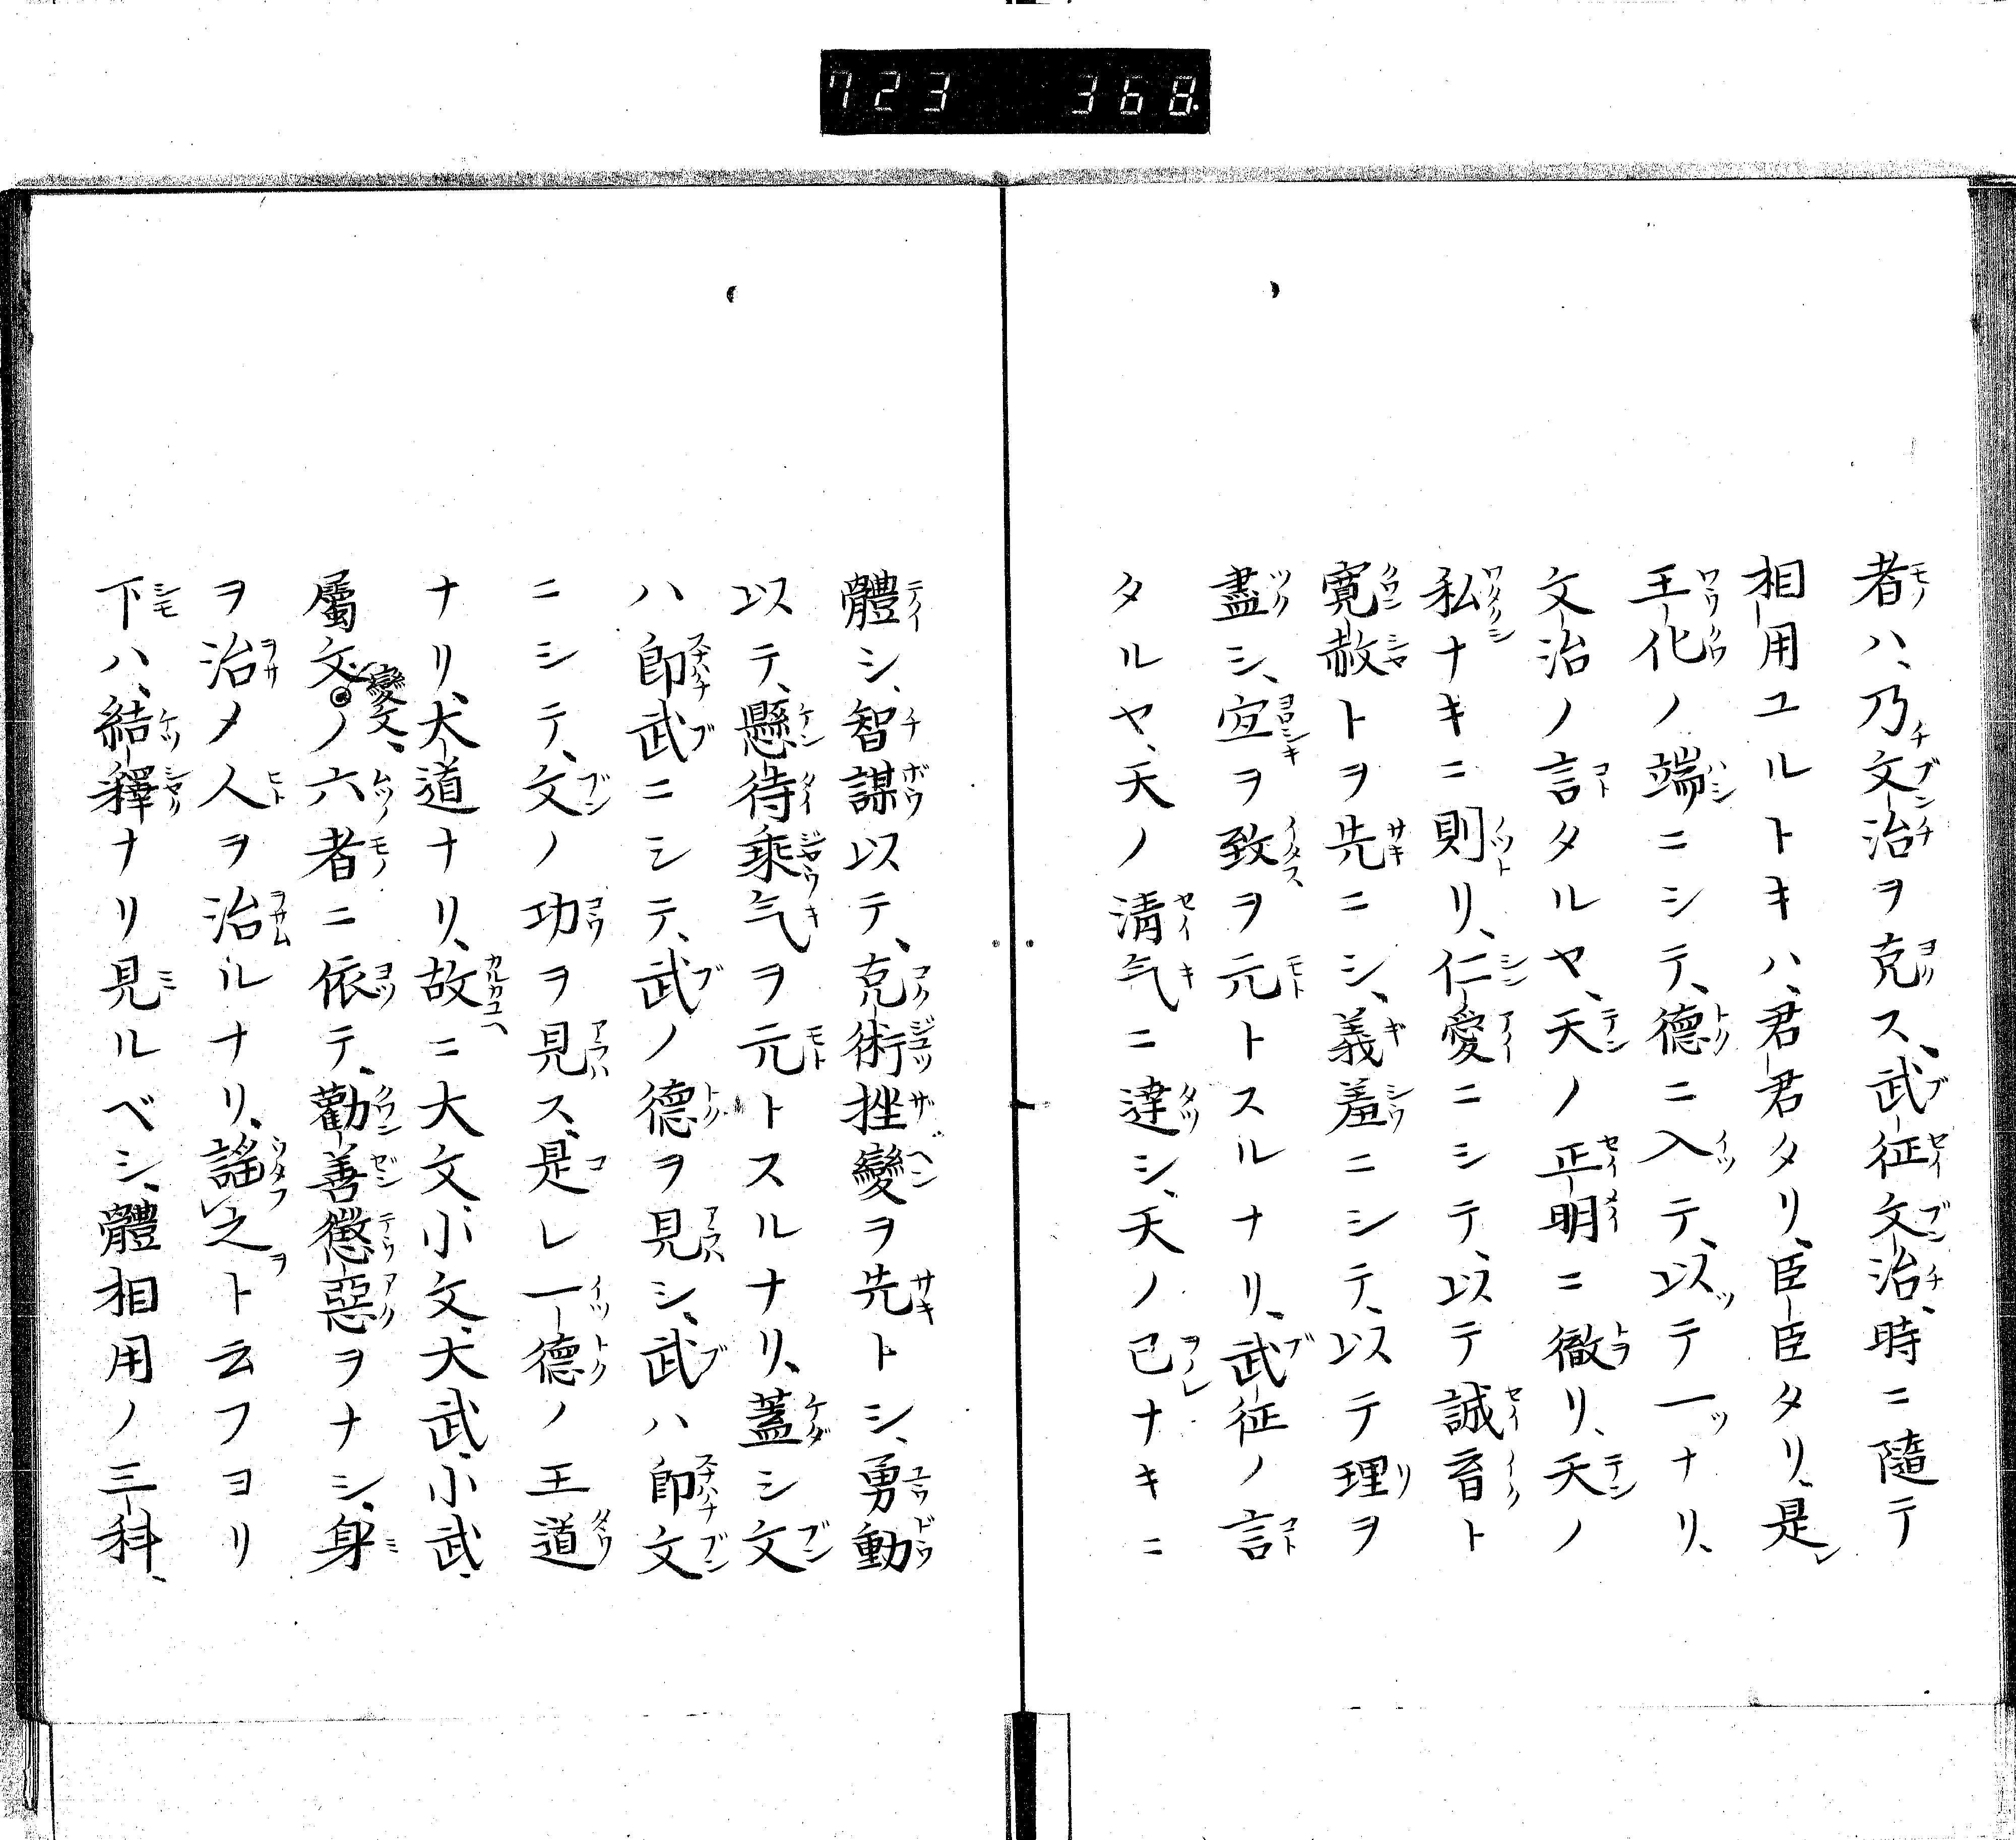 723 368
者ハ、乃文治ヲ克ス、武征文治、時ニ隨テ
相用ユルトキハ、君君タリ、臣臣タリ、是
王化ノ端ニシテ、德ニ入テ、以テ一ナリ、
文治ノ言タルヤ、天ノ正明ニ徹リ、天ノ
私ナキニ則リ、仁愛ニシテ、以テ誠育ト
寛赦トヲ先ニシ、義羞ニシテ、以テ理ヲ
盡シ、宜ヲ致ヲ元トスルナリ、武征ノ言
タルヤ、天ノ清气ニ達シ、天ノ已ナキニ
體シ、智謀以テ、克術挫變ヲ先トシ、勇動
以テ、懸待乘气ヲ元トスルナリ、蓋シ文
ハ即武ニシテ、武ノ德ヲ見シ、武ハ即文
ニシテ、文ノ功ヲ見ス、是レ一德ノ王道
ナリ、大道ナリ、故ニ大文、小文、大武、小武、
屬文、變文、ノ六者ニ依テ、勸善懲惡ヲナシ、身
ヲ治メ人ヲ治ルナリ、謠之ト云フヨリ
下ハ、結釋ナリ見ルベシ、體相用ノ三科、